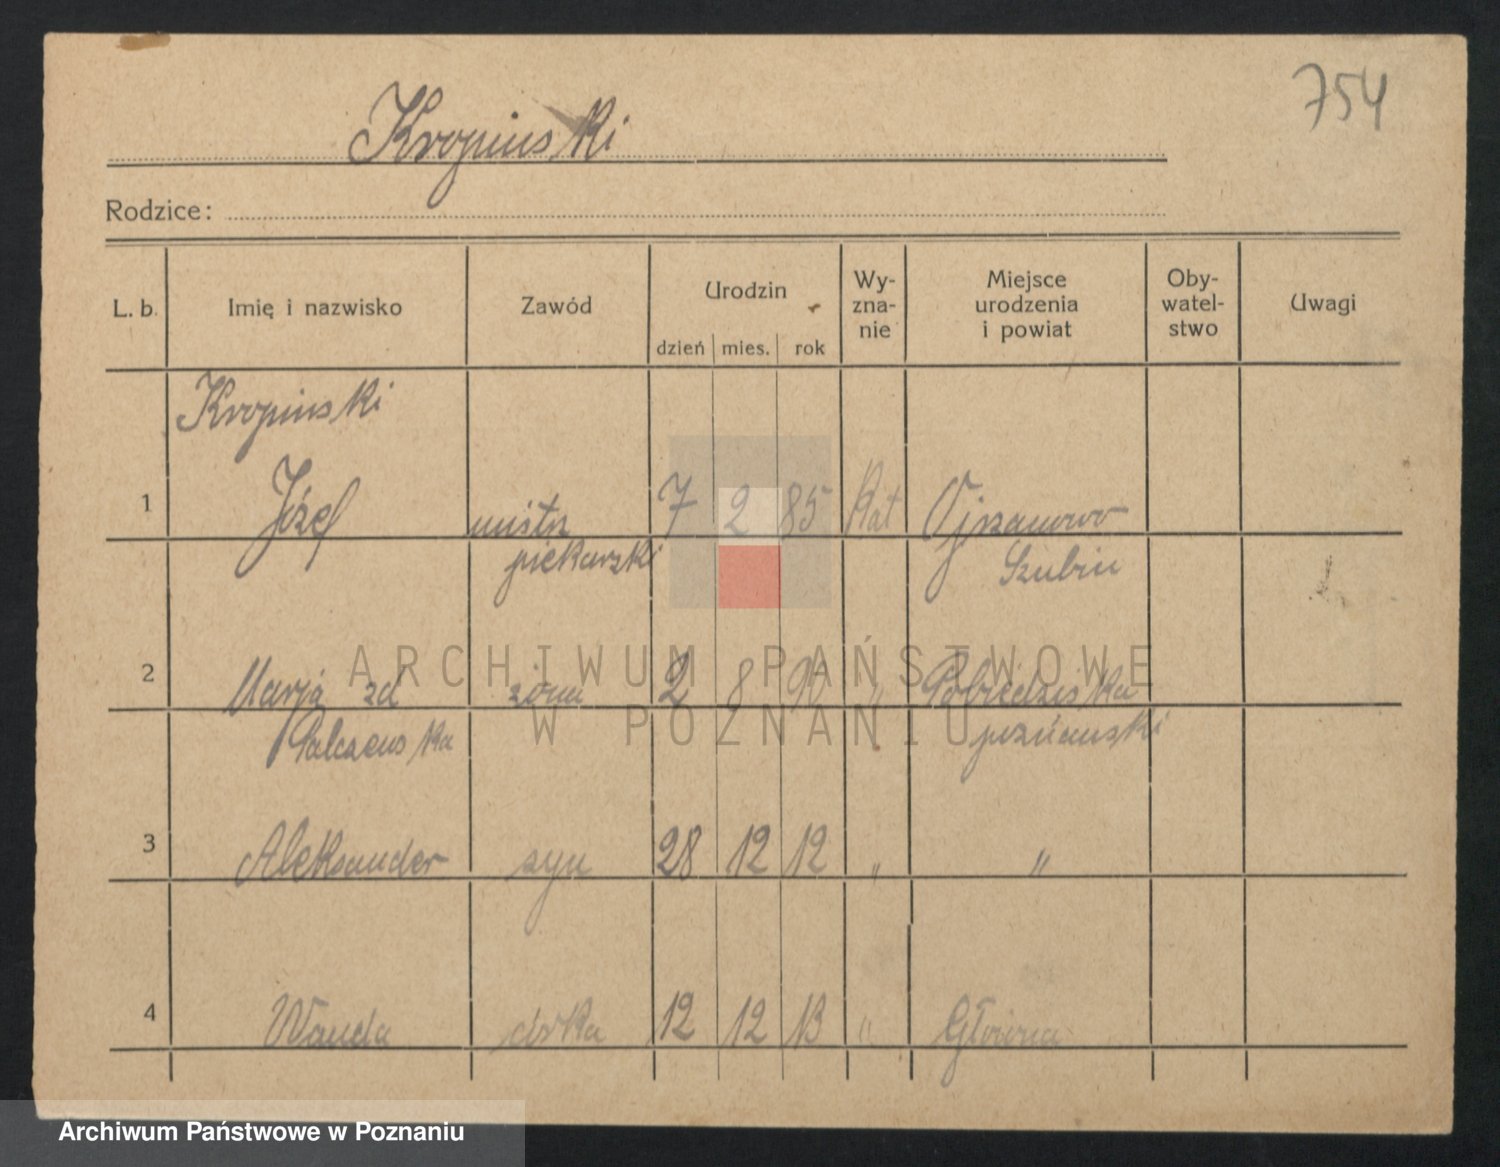 754
Kropinski
Rodzice:
L. b. Imię i nazwisko Zawód Urodzin dzień mies. rok Wy-zna-nie Miejsce urodzenia i powiat Oby-watel-stwo Uwagi
Kropinski
1 Józef mistrz 7 2 85 Kat
piekarski Szubin
2 Marja zd żona 2 8 90 " Pobiedziska
Palczewska poznański
3 Aleksander syn 28 12 12 " "
4 Wanda córka 12 12 13 " Główna
ARCHIWUM PAŃSTWOWE
W POZNANIU
Archiwum Państwowe w Poznaniu